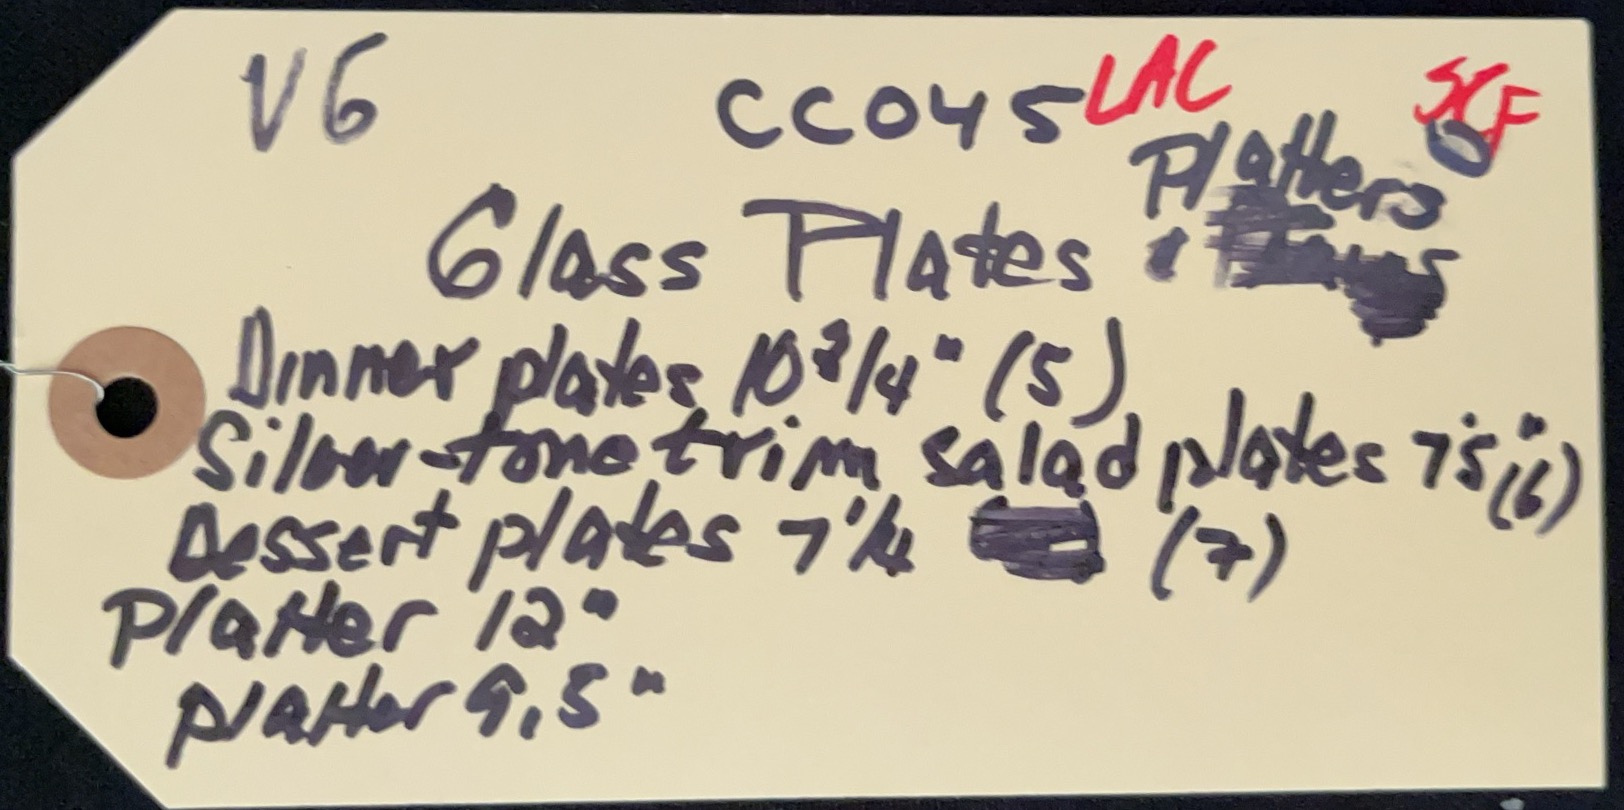 V6 CC045 LAC SCF
Platters
Glass Plates &
Dinner plates 10 3/4" (5)
Silver-tone trim salad plates 7.5" (6)
Dessert plates 7 1/4 (7)
Platter 12"
platter 9.5"